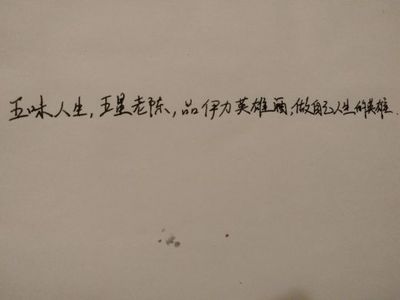 五味人生,五星老陈,品伊力英雄酒,做自己人生的英雄.